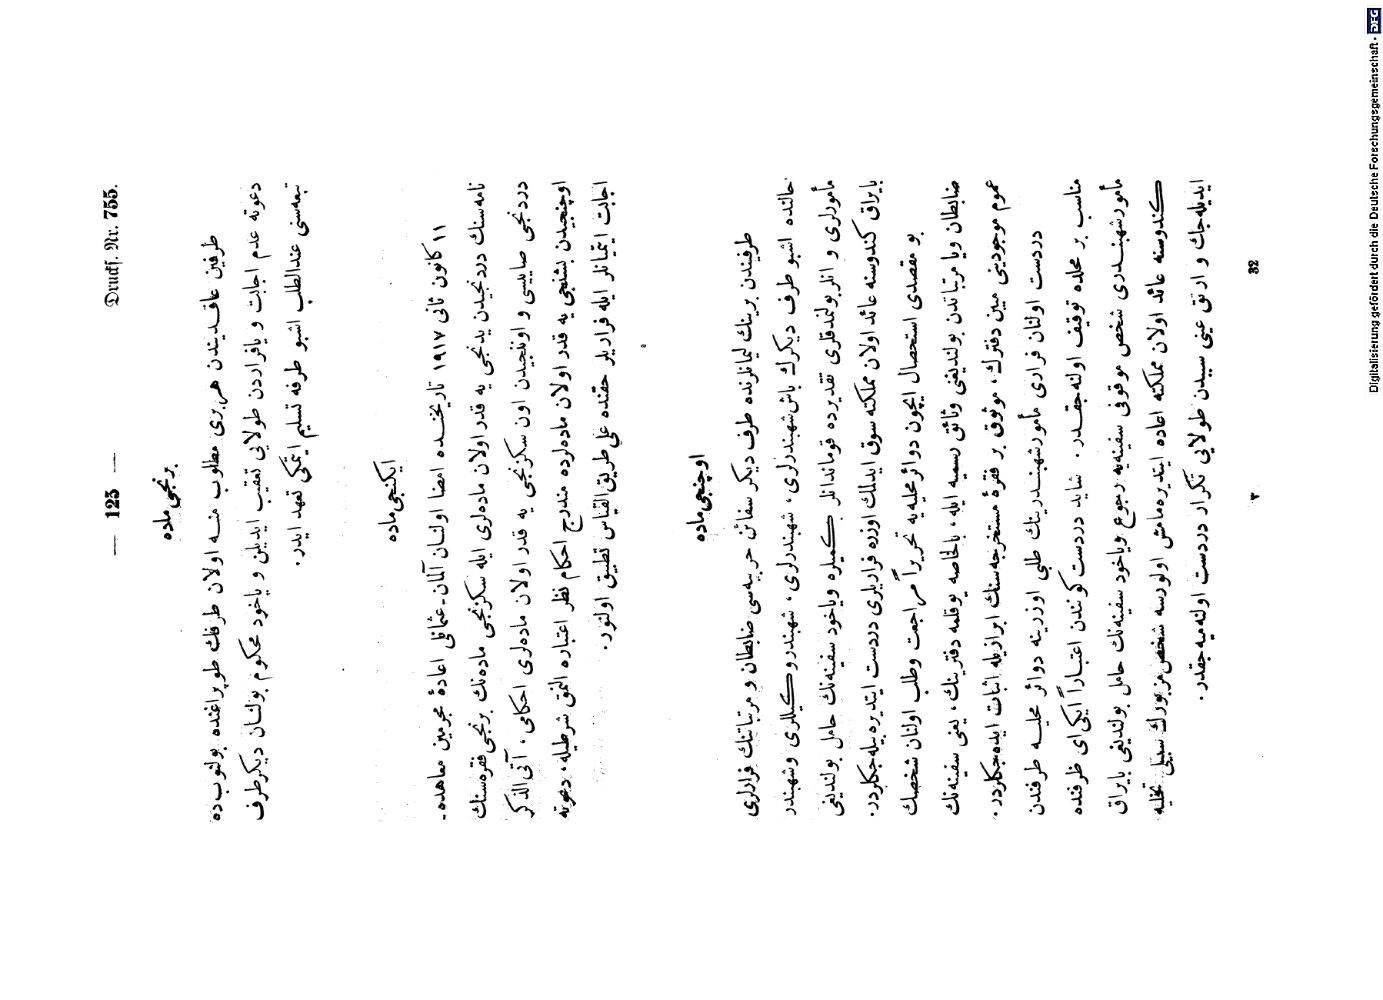 — 125 —
Druckſ. Nr. 755.
برنجی ماده
طرفین عاقدیندن هر بری مطلوب منه اولان طرفك طوپراغنده بولنوب ده
دعوته عدم اجابت و یا فراردن طولایی تعقیب ایدیلن و یاخود محکوم بولنان دیکر طرف
تبعه‌سنی عندالطلب اشبو طرفه تسلیم ایتمکی تعهد ایدر.
ایکنجی ماده
۱۱ کانون ثانی ۱۹۱۷ تاریخنده امضا اولنان آلمان ـ عثمانلی اعادۀ مجرمین معاهده ـ
نامه‌سنك دردنجیدن یدنجی یه قدر اولان ماده‌لری ایله سکزنجی ماده‌نك برنجی فقره‌سنك
دردنجی صاییسی و اونجیدن اون سکزنجی یه قدر اولان ماده‌لری احکامی، آتی الذکر
اوچنجیدن بشنجی یه قدر اولان ماده‌لرده مندرج احکام نظر اعتباره آلنمق شرطیله، دعوته
اجابت ایتمیانلر ایله فراریلر حقنده علی طریق القیاس تطبیق اولنور.
اوچنجی ماده
طرفیندن برینك لیمانلرنده طرف دیکر سفائن حربیه‌سی ضابطان و مرتباتنك فرارلری
حالنده اشبو طرف دیکرك باش‌شهبندرلری، شهبندرلری، شهبندر وکیللری و شهبندر
مأمورلری و انلر بولنمدقلری تقدیرده قوماندانلر کمیلره ویاخود سفینه‌نك حامل بولندیغی
بایراق کندوسنه عائد اولان مملکته سوق ایدلمك اوزره فراریلری دردست ایتدیره بیله‌جکلردر.
بو مقصدی استحصال ایچون دوائر محلیه‌یه تحریراً مراجعت وطلب اولنان شخصك
ضابطان ویا مرتباتدن بولندیغی وثائق رسمیه ایله، بالخاصه یوقلمه دفترینك، یعنی سفینه‌نك
عموم موجودینی مبین دفترك، موثوق بر فقرۀ مستخرجه‌سنك ابرازیله اثبات ایده‌جکلردر.
دردست اولنان فراری مأمور شهبندرینك طلبی اوزرینه دوائر محلیه طرفندن
مناسب بر محلده توقیف اولنه‌جقدر. شاید دردست کوندن اعتباراً ایکی آی ظرفنده
مأمور شهبندری شخص موقوفی سفینه‌یه رجوع ویاخود سفینه‌نك حامل بولندیغی بایراق
کندوسنه عائد اولان مملکته اعاده ایتدیره‌مامش اولورسه شخص مزبورك سبیلی تخلیه
ایدیله‌جك و ارتق عینی سببدن طولایی تکرار دردست اولنه‌میه‌جقدر.
۳
32
Digitalisierung gefördert durch die Deutsche Forschungsgemeinschaft · DFG